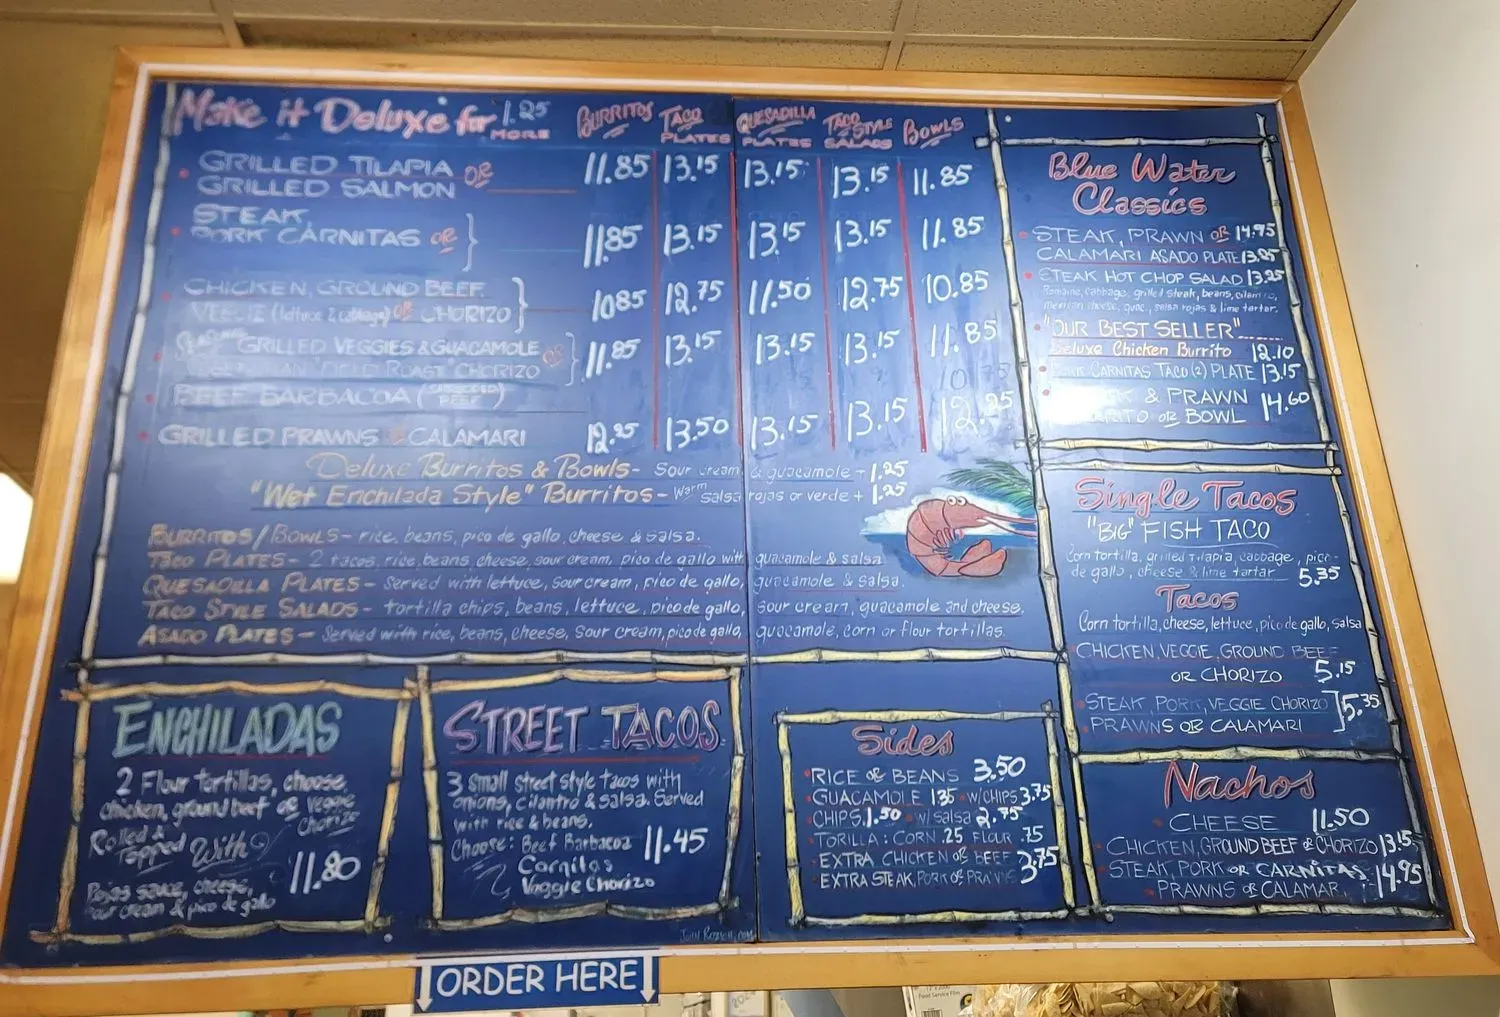 Make it Deluxe for 1.25 MORE
BURRITOS TACO PLATES QUESADILLA PLATES TACO STYLE SALADS BOWLS
GRILLED TILAPIA OR
GRILLED SALMON 11.85 13.15 13.15 13.15 11.85
STEAK,
PORK CARNITAS OR 11.85 13.15 13.15 13.15 11.85
CHICKEN, GROUND BEEF
VEGGIE (lettuce & cabbage) OR CHORIZO 10.85 12.75 11.50 12.75 10.85
GRILLED VEGGIES & GUACAMOLE OR 11.85 13.15 13.15 13.15 11.85
FIELD ROAST CHORIZO
BEEF BARBACOA (SHREDDED BEEF)
GRILLED PRAWNS CALAMARI 12.95 13.50 13.15 13.15
Deluxe Burritos & Bowls - Sour cream & guacamole + 1.25
"Wet Enchilada Style" Burritos - Warm salsa rojas or verde + 1.25
BURRITOS/BOWLS - rice, beans, pico de gallo, cheese & salsa.
TACO PLATES - 2 tacos, rice, beans, cheese, sour cream, pico de gallo with guacamole & salsa
QUESADILLA PLATES - Served with lettuce, sour cream, pico de gallo, guacamole & salsa.
TACO STYLE SALADS - tortilla chips, beans, lettuce, pico de gallo, sour cream, guacamole and cheese.
ASADO PLATES - Served with rice, beans, cheese, sour cream, pico de gallo, guacamole, corn or flour tortillas.
ENCHILADAS
2 Flour tortillas, choose,
chicken, ground beef or veggie
chorizo
Rolled &
Topped With
Rojas sauce, cheese,
sour cream & pico de gallo
11.80
STREET TACOS
3 small street style tacos with
onions, cilantro & salsa. Served
with rice & beans.
Choose: Beef Barbacoa 11.45
Carnitas
Veggie Chorizo
Sides
RICE OR BEANS 3.50
GUACAMOLE 1.35 w/CHIPS 3.75
CHIPS 1.50 w/ salsa 2.75
TORILLA: CORN .25 FLOUR .75
EXTRA CHICKEN OR BEEF 3.75
EXTRA STEAK, PORK OR PRAWNS 3.75
Blue Water
Classics
STEAK, PRAWN OR 14.95
CALAMARI ASADO PLATE 13.25
STEAK HOT CHOP SALAD 13.25
Romaine, cabbage, grilled steak, beans, cilantro,
mexican cheese, guac., salsa rojas & lime tartar.
"OUR BEST SELLER"
Deluxe Chicken Burrito 12.10
PORK CARNITAS TACO (2) PLATE 13.15
& PRAWN
OR BOWL 14.60
Single Tacos
"BIG" FISH TACO
Corn tortilla, grilled tilapia, cabbage, pico
de gallo, cheese & lime tartar 5.35
Tacos
Corn tortilla, cheese, lettuce, pico de gallo, salsa
CHICKEN, VEGGIE, GROUND BEEF
OR CHORIZO 5.15
STEAK, PORK, VEGGIE CHORIZO
PRAWNS OR CALAMARI 5.35
Nachos
CHEESE 11.50
CHICKEN, GROUND BEEF OR CHORIZO 13.15
STEAK, PORK OR CARNITAS 14.95
PRAWNS OR CALAMARI
ORDER HERE